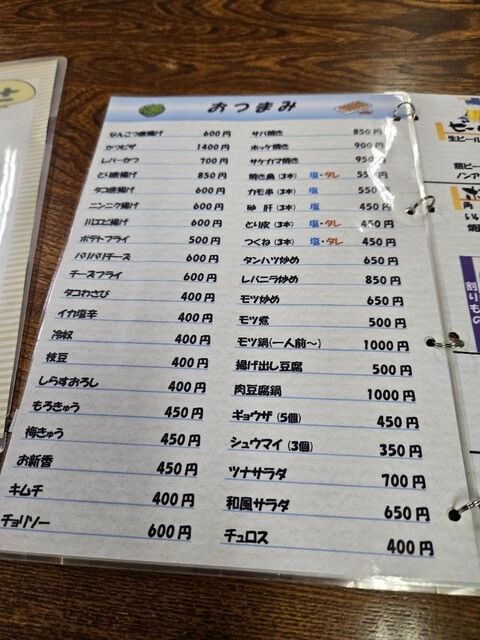 おつまみ
なんこつ唐揚げ 600円
かつピザ 1400円
レバーかつ 700円
とり唐揚げ 850円
タコ唐揚げ 600円
ニンニク揚げ 600円
川エビ揚げ 600円
ポテトフライ 500円
パリパリチーズ 600円
チーズフライ 600円
タコわさび 400円
イカ塩辛 400円
冷奴 400円
枝豆 400円
しらすおろし 400円
もろきゅう 450円
梅きゅう 450円
お新香 450円
キムチ 400円
チョリソー 600円
サバ焼き 850円
ホッケ焼き 900円
サケカマ焼き 950
焼き鳥(3本) 塩・タレ 550
カモ串(3本) 塩 550
砂肝(3本) 塩 450
とり皮(3本) 塩・タレ 450円
つくね(3本) 塩・タレ 450円
タンハツ炒め 650円
レバニラ炒め 850円
モツ炒め 650円
モツ煮 500円
モツ鍋(一人前〜) 1000円
揚げ出し豆腐 500円
肉豆腐鍋 1000円
ギョウザ(5個) 450円
シュウマイ(3個) 350円
ツナサラダ 700円
和風サラダ 650円
チュロス 400円
生ビール
割りもの